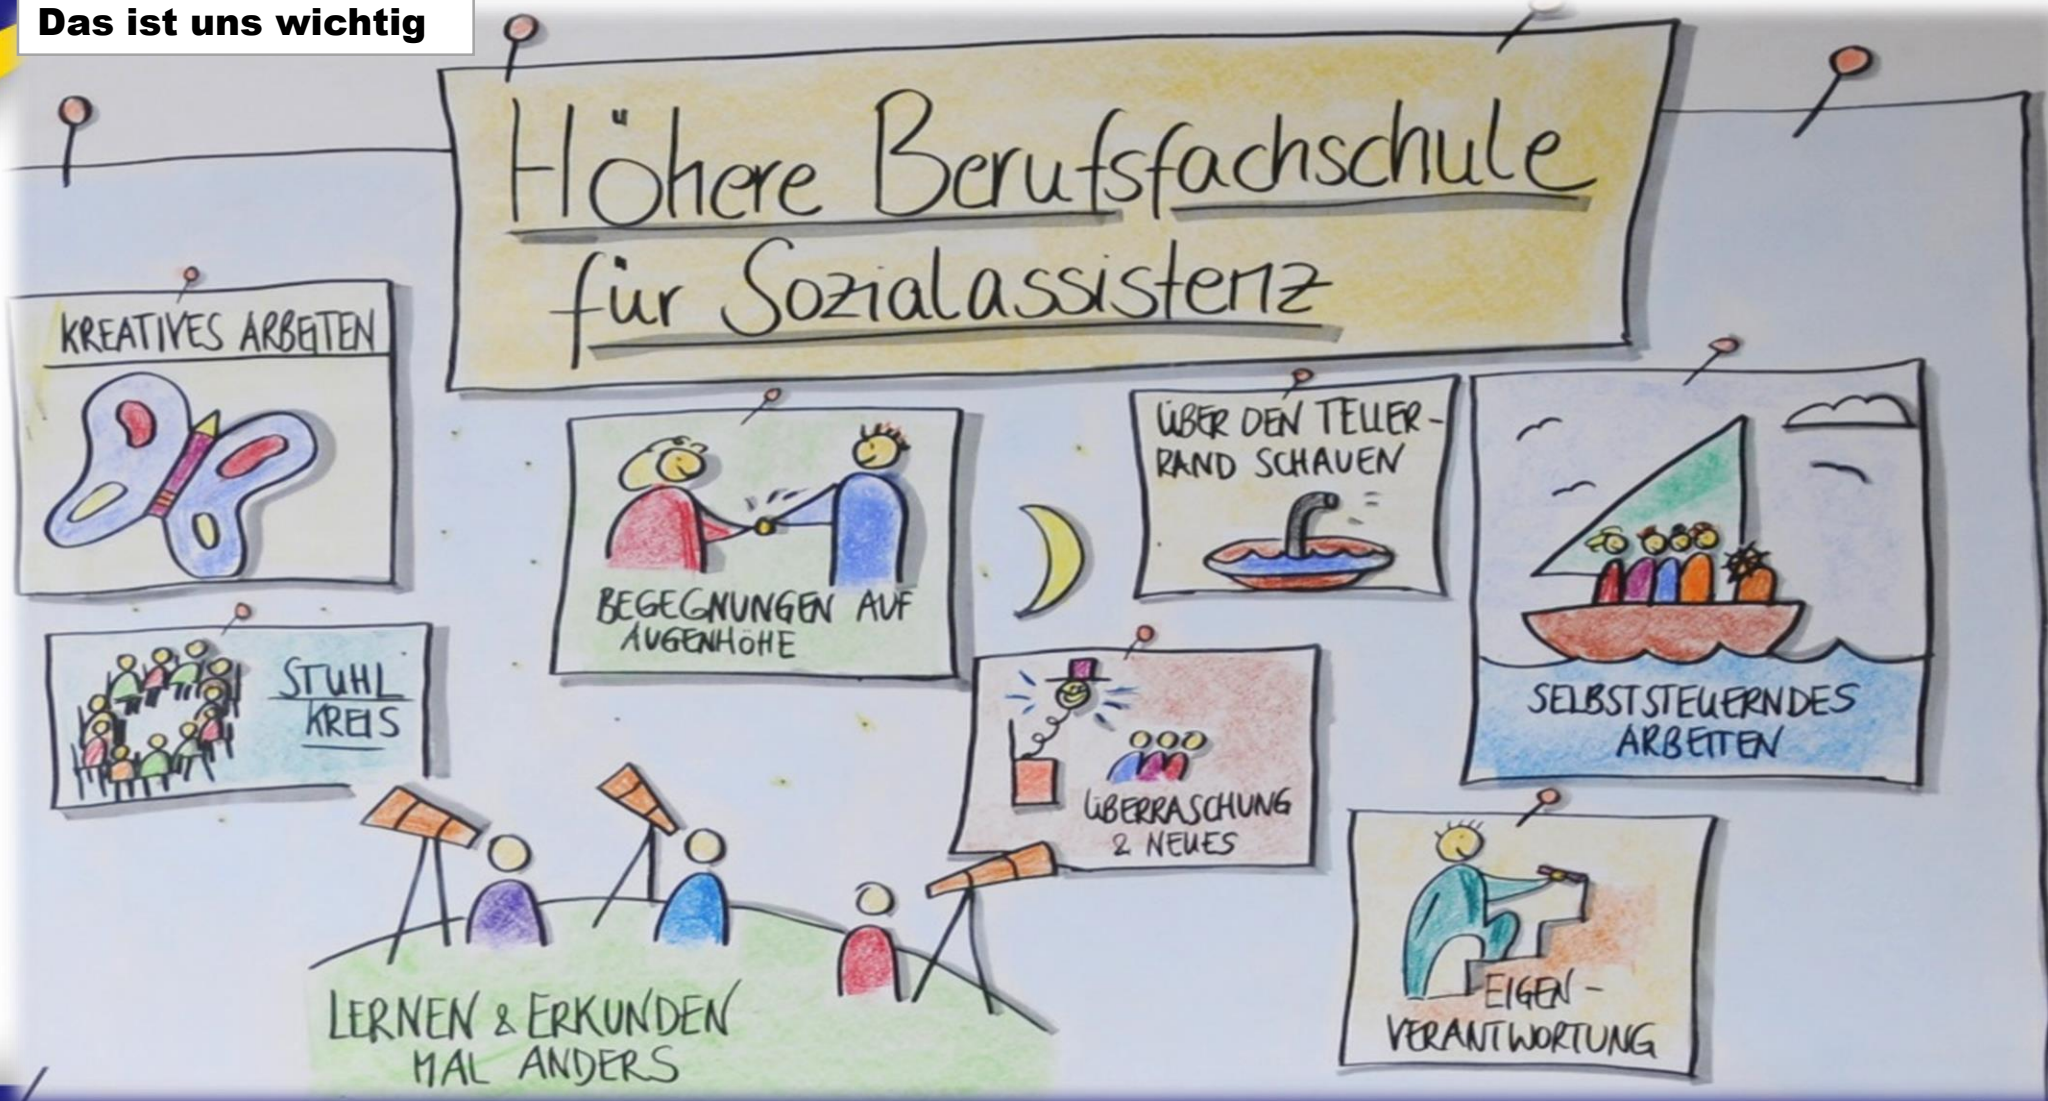 Das ist uns wichtig
Höhere Berufsfachschule
für Sozialassistenz
KREATIVES ARBEITEN
STUHL
KREIS
BEGEGNUNGEN AUF
AUGENHÖHE
ÜBER DEN TELLER-
RAND SCHAUEN
SELBSTSTEUERNDES
ARBEITEN
ÜBERRASCHUNG
& NEUES
LERNEN & ERKUNDEN
MAL ANDERS
EIGEN-
VERANTWORTUNG